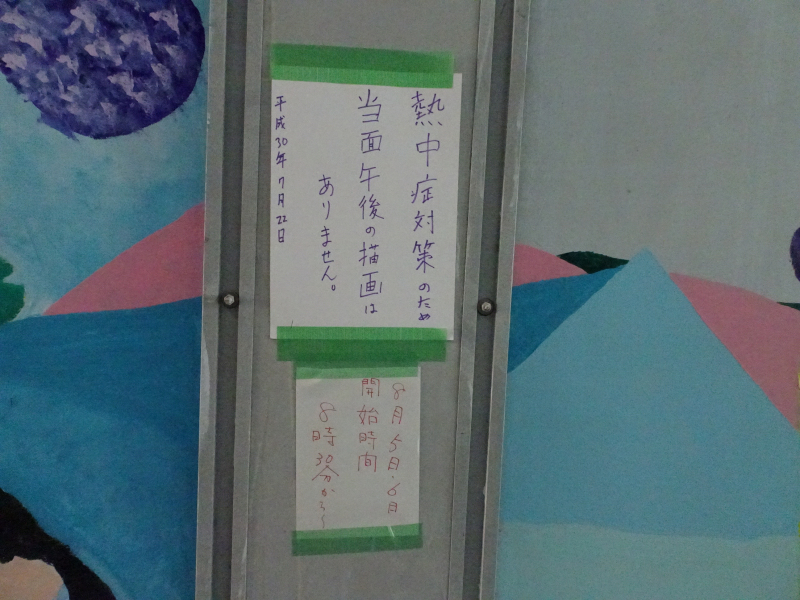 熱中症対策のため
当面午後の描画は
ありません。
平成30年7月22日
8月5日・6日
開始時間
8時30分から〜